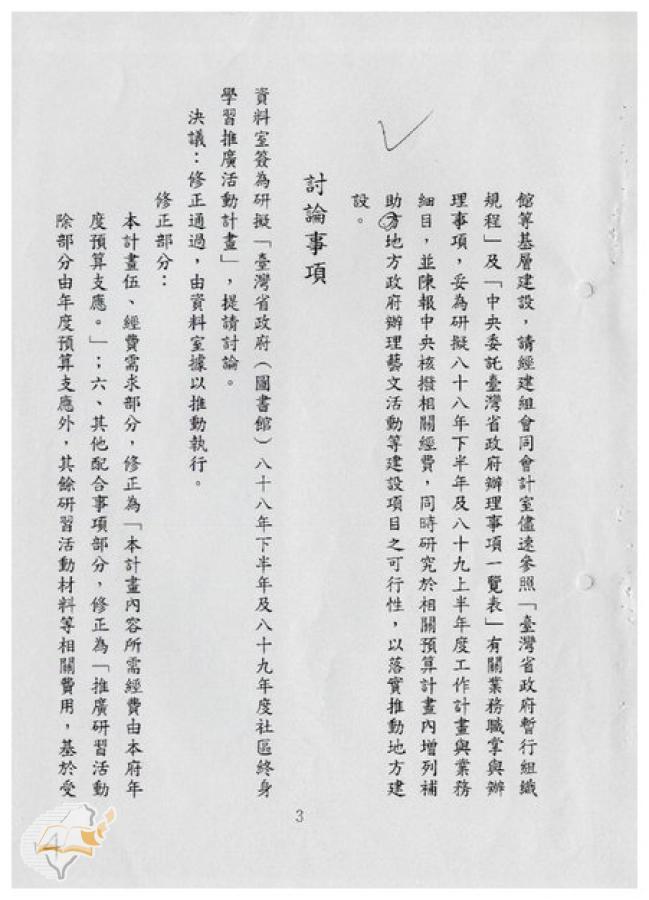 館等基層建設，請經建組會同會計室儘速參照「臺灣省政府暫行組織
規程」及「中央委託臺灣省政府辦理事項一覽表」有關業務職掌與辦
理事項，妥為研擬八十八年下半年及八十九上半年度工作計畫與業務
細目，並陳報中央核撥相關經費，同時研究於相關預算計畫內增列補
助方地方政府辦理藝文活動等建設項目之可行性，以落實推動地方建
設。
討論事項
資料室簽為研擬「臺灣省政府（圖書館）八十八年下半年及八十九年度社區終身
學習推廣活動計畫」，提請討論。
決議：修正通過，由資料室據以推動執行。
修正部分：
本計畫伍、經費需求部分，修正為「本計畫內容所需經費由本府年
度預算支應。」；六、其他配合事項部分，修正為「推廣研習活動
除部分由年度預算支應外，其餘研習活動材料等相關費用，基於受
3